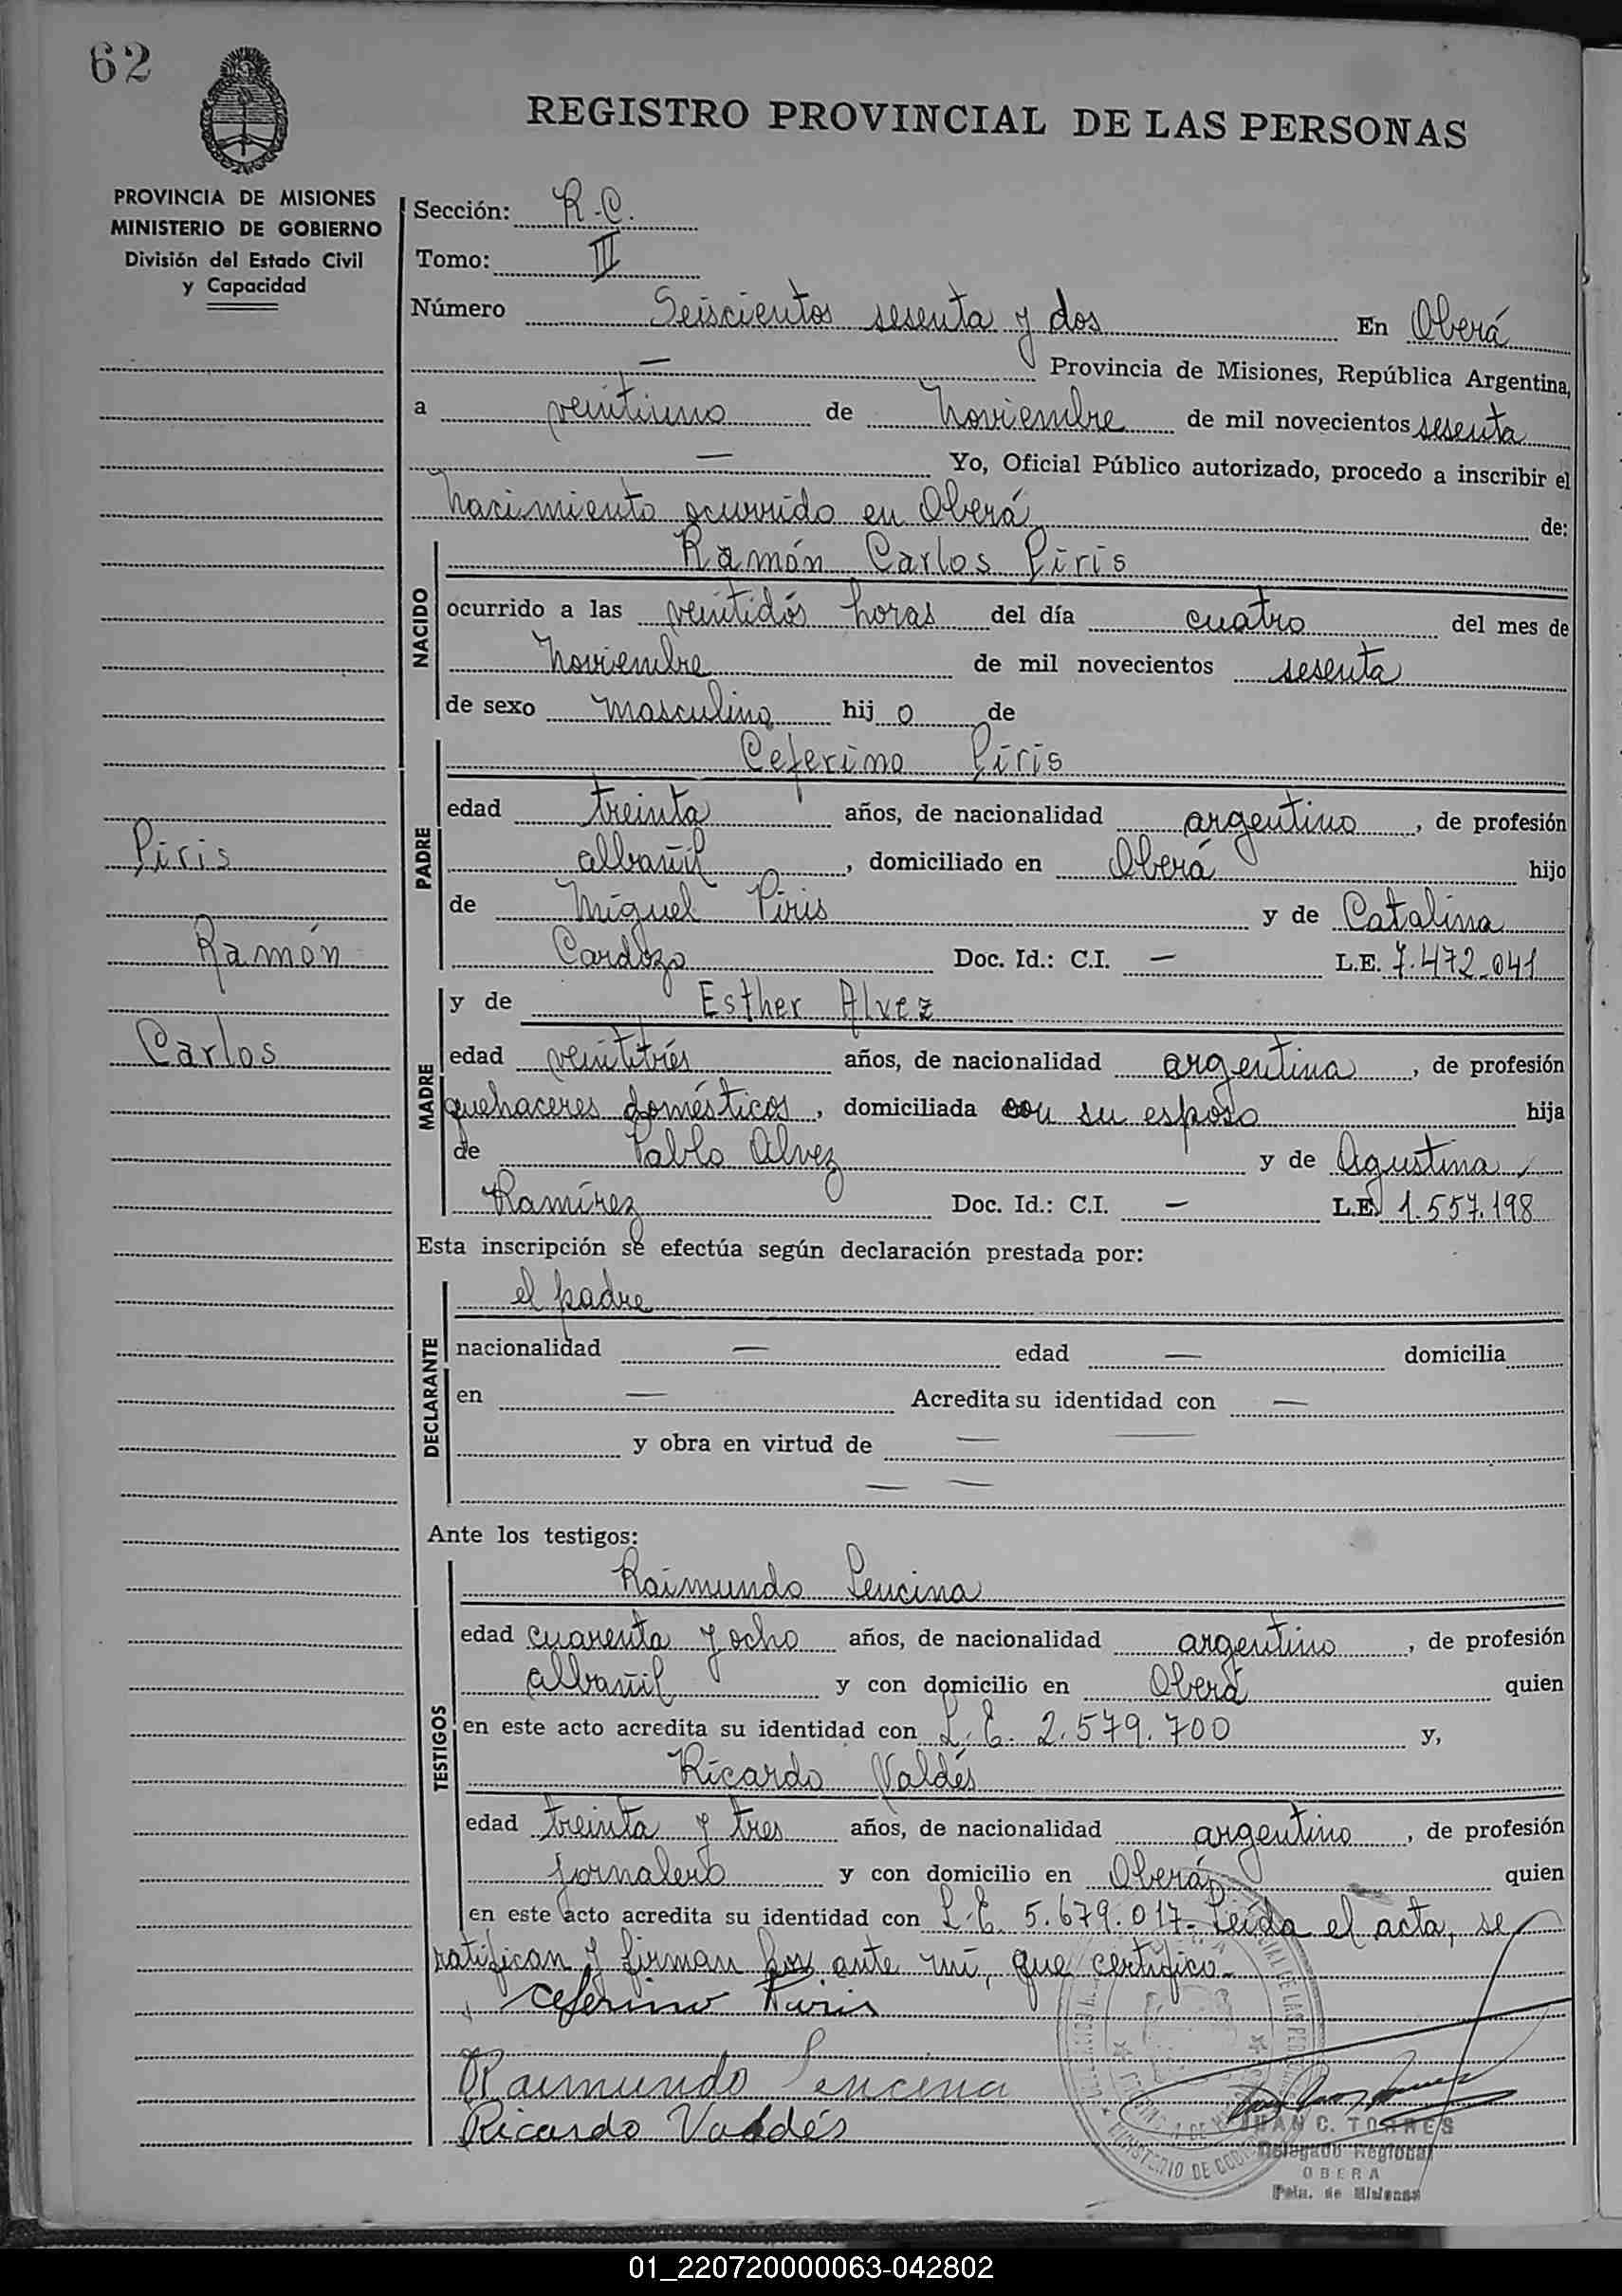 62
REGISTRO PROVINCIAL DE LAS PERSONAS
PROVINCIA DE MISIONES
MINISTERIO DE GOBIERNO
División del Estado Civil
y Capacidad
Sección: R.C.
Tomo: III
Número Seiscientos sesenta y dos En Oberá
— Provincia de Misiones, República Argentina,
a veintiuno de Noviembre de mil novecientos sesenta
— Yo, Oficial Público autorizado, procedo a inscribir el
nacimiento ocurrido en Oberá de:
NACIDO
Ramón Carlos Piris
ocurrido a las veintidós horas del día cuatro del mes de
Noviembre de mil novecientos sesenta
de sexo masculino hijo de
PADRE
Ceferino Piris
edad treinta años, de nacionalidad argentino, de profesión
albañil, domiciliado en Oberá hijo
de Miguel Piris y de Catalina
Cardozo Doc. Id.: C.I. — L.E. 7.472.041
Piris
Ramón
Carlos
MADRE
y de Esther Alvez
edad veintitrés años, de nacionalidad argentina, de profesión
quehaceres domésticos, domiciliada con su esposo hija
de Pablo Alvez y de Agustina
Ramírez Doc. Id.: C.I. — L.E. 1.557.198
Esta inscripción se efectúa según declaración prestada por:
DECLARANTE
el padre
nacionalidad — edad — domicilia
en — Acredita su identidad con —
y obra en virtud de — —
— —
Ante los testigos:
TESTIGOS
Raimundo Lencina
edad cuarenta y ocho años, de nacionalidad argentino, de profesión
albañil y con domicilio en Oberá quien
en este acto acredita su identidad con L.E. 2.579.700 y,
Ricardo Valdés
edad treinta y tres años, de nacionalidad argentino, de profesión
jornalero y con domicilio en Oberá quien
en este acto acredita su identidad con L.E. 5.679.017. Leída el acta, se
ratifican y firman por ante mí, que certifico.
Ceferino Piris
Raimundo Lencina
Ricardo Valdés
JUAN C. TORRES
Delegado Regional
OBERA
Pcia. de Misiones
01_220720000063-042802